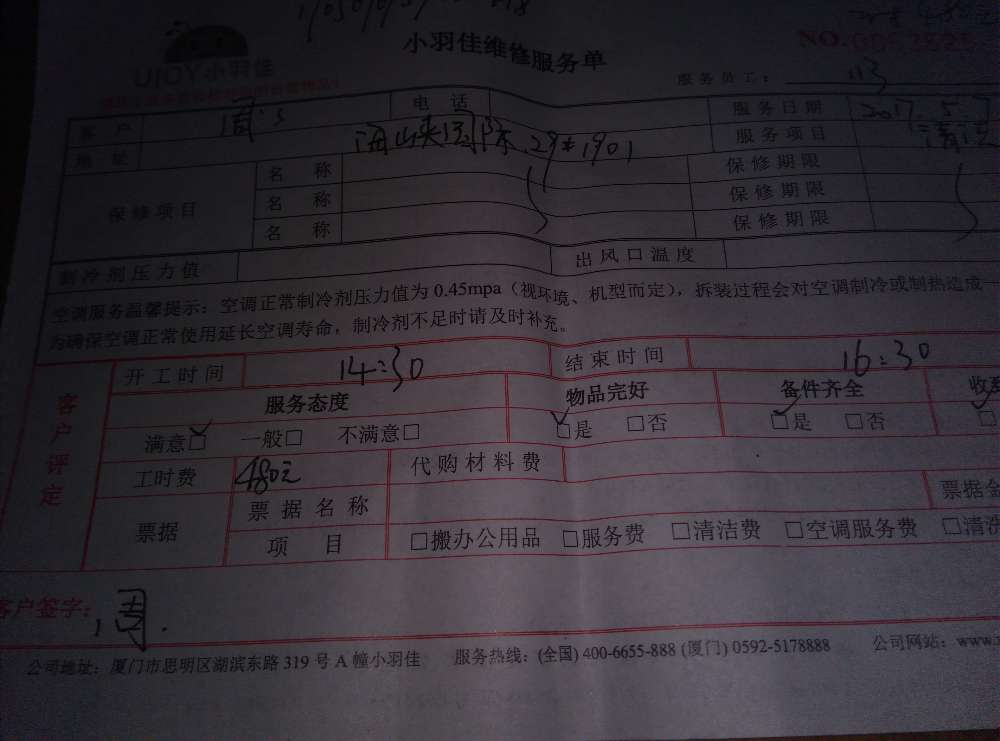 小羽佳维修服务单
UJOY小羽佳
NO.
服务员工： 113
客户 周 电话 服务日期 2017.5.7
地址 海峡国际 29#1901 服务项目 清洗
保修项目 名称 保修期限
名称 保修期限
名称 保修期限
制冷剂压力值 出风口温度
空调服务温馨提示：空调正常制冷剂压力值为0.45mpa（视环境、机型而定），拆装过程会对空调制冷或制热造成一
为确保空调正常使用延长空调寿命，制冷剂不足时请及时补充。
客户评定
开工时间 14:30 结束时间 16:30
服务态度 物品完好 备件齐全 收
满意□ 一般□ 不满意□ □是 □否 □是 □否 □
工时费 480元 代购材料费
票据 票据名称 票据金
项目 □搬办公用品 □服务费 □清洁费 □空调服务费 □清洗
客户签字： 周.
公司地址：厦门市思明区湖滨东路319号A幢小羽佳 服务热线：(全国) 400-6655-888 (厦门) 0592-5178888 公司网站：www.